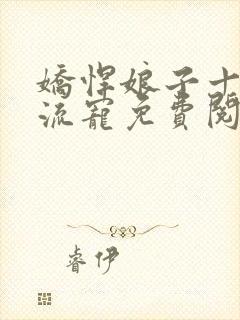 嬌悍娘子十
流寵免費閱
睿伊